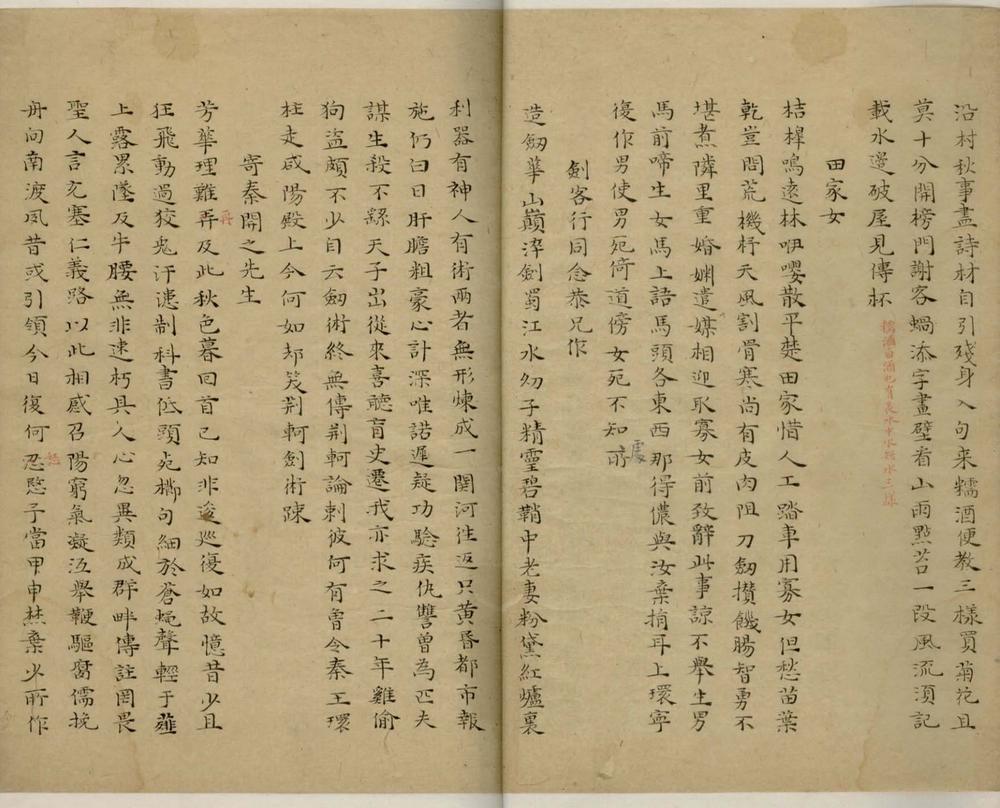 沿村秋事盡詩材自引殘身入句来糯酒便教三樣買菊花且
莫十分開榜門謝客蝸添字畫壁看山雨點苔一段風流湏記
載水邊破屋見傳杯
糯酒白酒也有長水中水短水三樣
田家女
桔橰嗚遠林咿嚶散平楚田家惜人工踏車用寡女但愁苗葉
乾豈問荒機杼天風割骨寒尚有皮肉阻刀劒攢饑腸智勇不
堪煮隣里重婚媾遣媒相迎取寡女前致辭此事諒不舉生男
馬前啼生女馬上語馬頭各東西那得儂與汝棄捐耳上環寧
復作男使男死倚道傍女死不知所
處
劍客行同念恭兄作
造劒華山巔淬劍蜀江水匆子精靈碧鞘中老妻粉黛紅爐裏
利器有神人有術兩者無形煉成一関河往返只黄昏都市報
施仍白日肝膽粗豪心計深唯諾遲疑功驗疾仇讐曽為匹夫
謀生殺不繇天子出從來喜聽盲史遷我亦求之二十年雞偷
狗盜頗不少自云劒術終無傳荆軻論刺彼何有魯令秦王環
柱走咸陽殿上今何如却笑荆軻劍術踈
寄秦開之先生
芳華理難再及此秋色暮回首已知非逡巡復如故憶昔少且
再
狂飛動過狡兎汗漫制科書低頭宛櫛句細於蒼蝇聲輕于薤
上露累墜及牛腰無非速朽具人心忽異類成群畔傳註罔畏
聖人言充塞仁義路以此相感召陽窮氣凝冱舉鞭驅腐儒挽
舟向南渡夙昔或引領今日復何忍愍予當甲申焚棄少所作